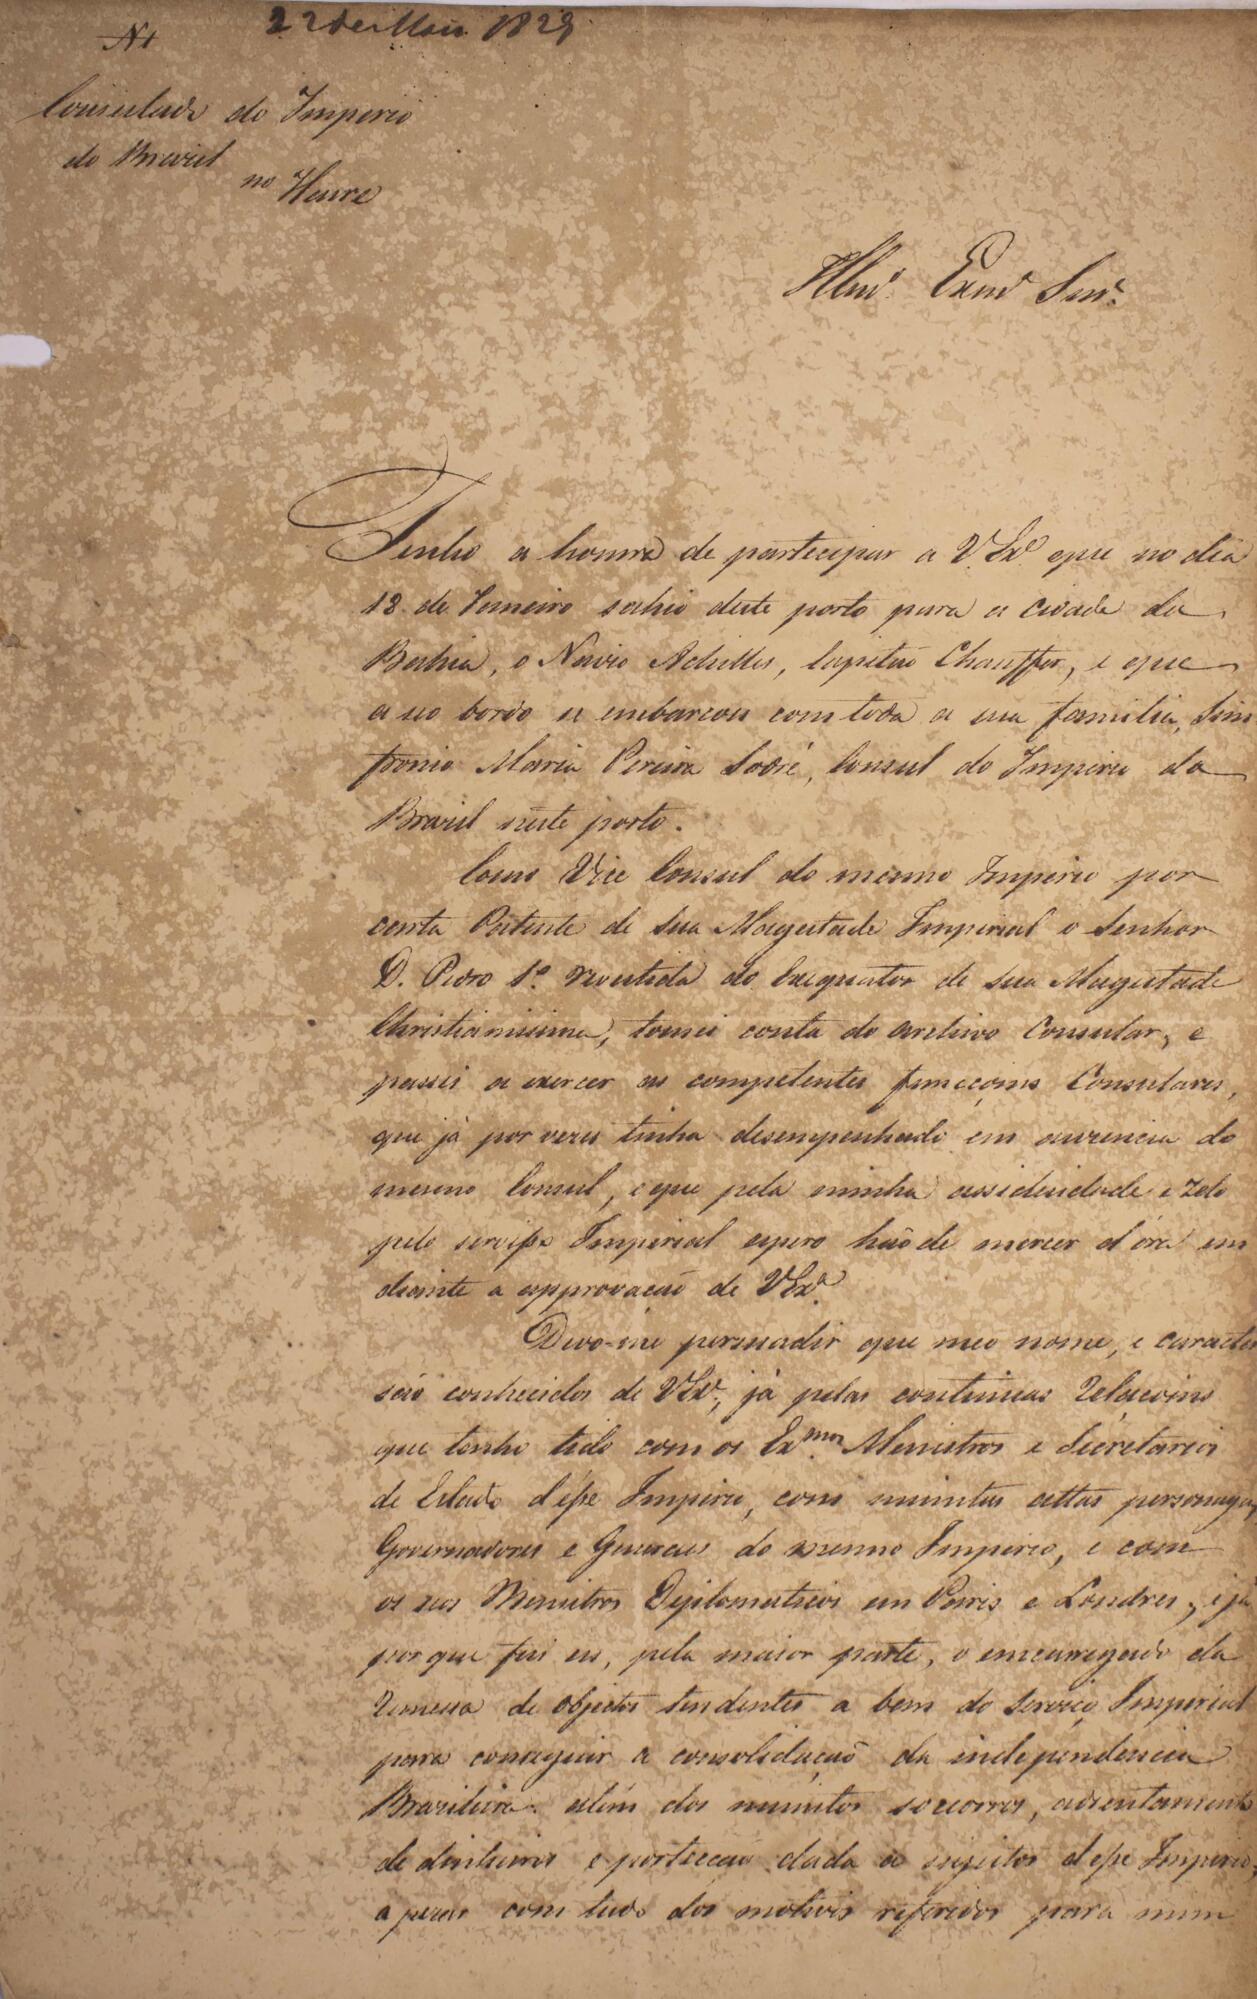 N 1
22 de Maio 1829
Consulado do Imperio
do Brazil
no Havre
Illmo. Exmo Snr.
Tenho a honra de partecipar a V. Exa que no dia
18 de Janeiro sahio deste porto para a cidade da
Bahia, o Navio Achilles, Capitaõ Chauffer, e que
a seo bordo se embarcou com toda a sua familia, Sim
fronio Maria Pereira Sodré, Consul do Imperio do
Brazil neste porto.
Como Vice Consul do mesmo Imperio por
Carta Patente de Sua Magestade Imperial o Senhor
D. Pedro 1º revestida do Exequator de Sua Magestade
Christianissima, tomei conta do archivo Consular, e
passei a exercer as competentes funccoins Consulares,
que já por vezes tinha desempenhado em auzencia do
mesmo Consul, e que pela minha assiduidade e zelo
pelo serviço Imperial espero haõ de merecer d'óra em
diante a approvacaõ de V Exa.
Devo-me persuadir que meo nome, e caracter
saõ conhecidos de V Exa., já pelas continuas relacoins
que tenho tido com os Exmos Ministros e Secretarios
de Estado d'ésse Imperio, com muintas altas personagens,
Governadores e Generaes do mesmo Imperio, e com
os seos Menistros Diplomaticos em Paris e Londres, e já
por que fui eu, pela maior parte, o encarregado da
remessa de objectos tendentes a bem do Serviço Imperial
para conseguir a consolidaçaõ da independencia
Brazileira. além dos muintos socorros, adientamento
de dinheiros e portecçaõ dada a sujeitos d'esse Imperio,
a pezar com tudo dos motivos referidos para mim